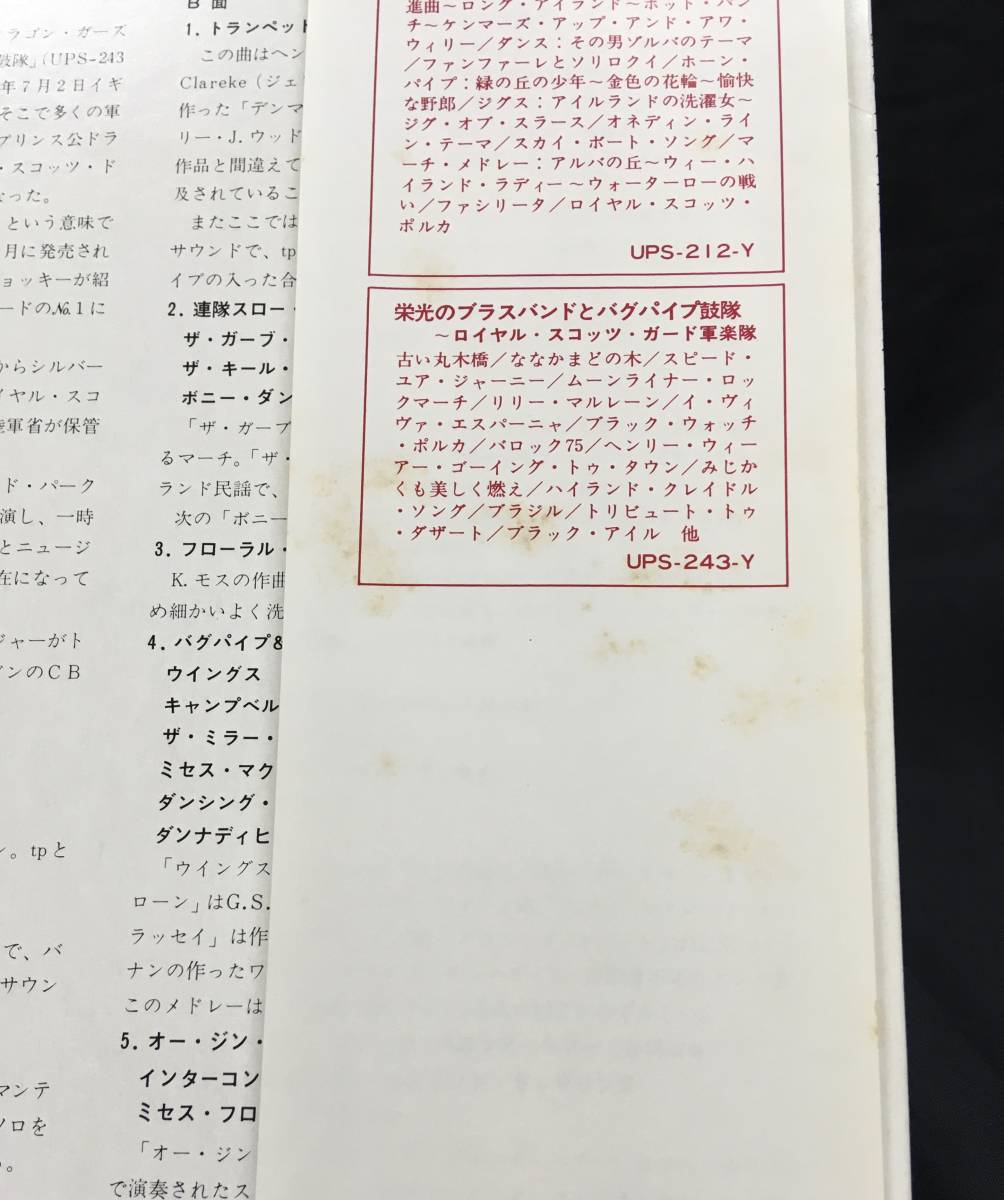 ラゴン・ガーズ
鼓隊」(UPS-243
年7月2日イギ
そこで多くの軍
プリンス公ドラ
・スコッツ・ド
なった。
という意味で
月に発売され
ョッキーが紹
ードの№1に
からシルバー
イヤル・スコ
陸軍省が保管
ド・パーク
演し、一時
とニュージ
在になって
ジャーがト
インのCB
ン。tpと
で、バ
サウン
マンテ
ソロを
B 面
1. トランペット
この曲はヘン
Clareke(ジェ
作った「デンマ
リー・J.ウッド
作品と間違えて
及されているこ
またここでは
サウンドで、tp
イプの入った合
2. 連隊スロー・
ザ・ガーブ・
ザ・キール・
ボニー・ダン
「ザ・ガーブ
るマーチ。「ザ・
ランド民謡で、
次の「ボニー
3. フローラル・
K.モスの作曲
め細かいよく洗
4. バグパイプ&
ウイングス
キャンプベル
ザ・ミラー・
ミセス・マク
ダンシング・
ダンナディヒ
「ウイングス
ローン」はG.S.
ラッセイ」は作
ナンの作ったワ
このメドレーは
5. オー・ジン・
インターコン
ミセス・フロ
「オー・ジン
で演奏されたス
進曲~ロング・アイランド~ホット・パン
チ~ケンマーズ・アップ・アンド・アワ・
ウィリー/ダンス:その男ゾルバのテーマ
/ファンファーレとソリロクイ/ホーン・
パイプ:緑の丘の少年~金色の花輪~愉快
な野郎/ジグス:アイルランドの洗濯女~
ジグ・オブ・スラース/オネディン・ライ
ン・テーマ/スカイ・ボート・ソング/マ
ーチ・メドレー:アルバの丘~ウィー・ハ
イランド・ラディー~ウォーターローの戦
い/ファシリータ/ロイヤル・スコッツ・
ポルカ
UPS-212-Y
栄光のブラスバンドとバグパイプ鼓隊
~ロイヤル・スコッツ・ガード軍楽隊
古い丸木橋/ななかまどの木/スピード・
ユア・ジャーニー/ムーンライナー・ロッ
クマーチ/リリー・マルレーン/イ・ヴィ
ヴァ・エスパーニャ/ブラック・ウォッチ
・ポルカ/バロック75/ヘンリー・ウィー
アー・ゴーイング・トゥ・タウン/みじか
くも美しく燃え/ハイランド・クレイドル
・ソング/ブラジル/トリビュート・トゥ
・ダザート/ブラック・アイル 他
UPS-243-Y